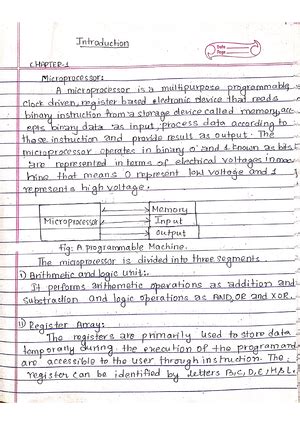 Introduction
Date
Page
CHAPTER-1
Microprocessor:
A microprocessor is a multipurpose programmable,
clock driven, register based electronic device that reads
binary instruction from a storage device called memory, acc-
epts binary data as input, process data according to
those instruction and provide result as output. The
microprocessor operates in binary 0 and 1 known as bits
are represented in terms of electrical voltages in mac
hine that means 0 represent low voltage and 1
represents high voltage.
Microprocessor
Memory
Input
Output
fig: A programmable Machine.
The microprocessor is divided into three segments
i) Arithmetic and logic unit:-
It performs arithmetic operations as addition and
subtraction and logic operations as AND, OR and XOR.
ii) Register Array:
The registers are primarily used to store data
temporarily during the execution of the program and
are accessible to the user through instruction. The
register can be identified by letters B, C, D, E, H & L.